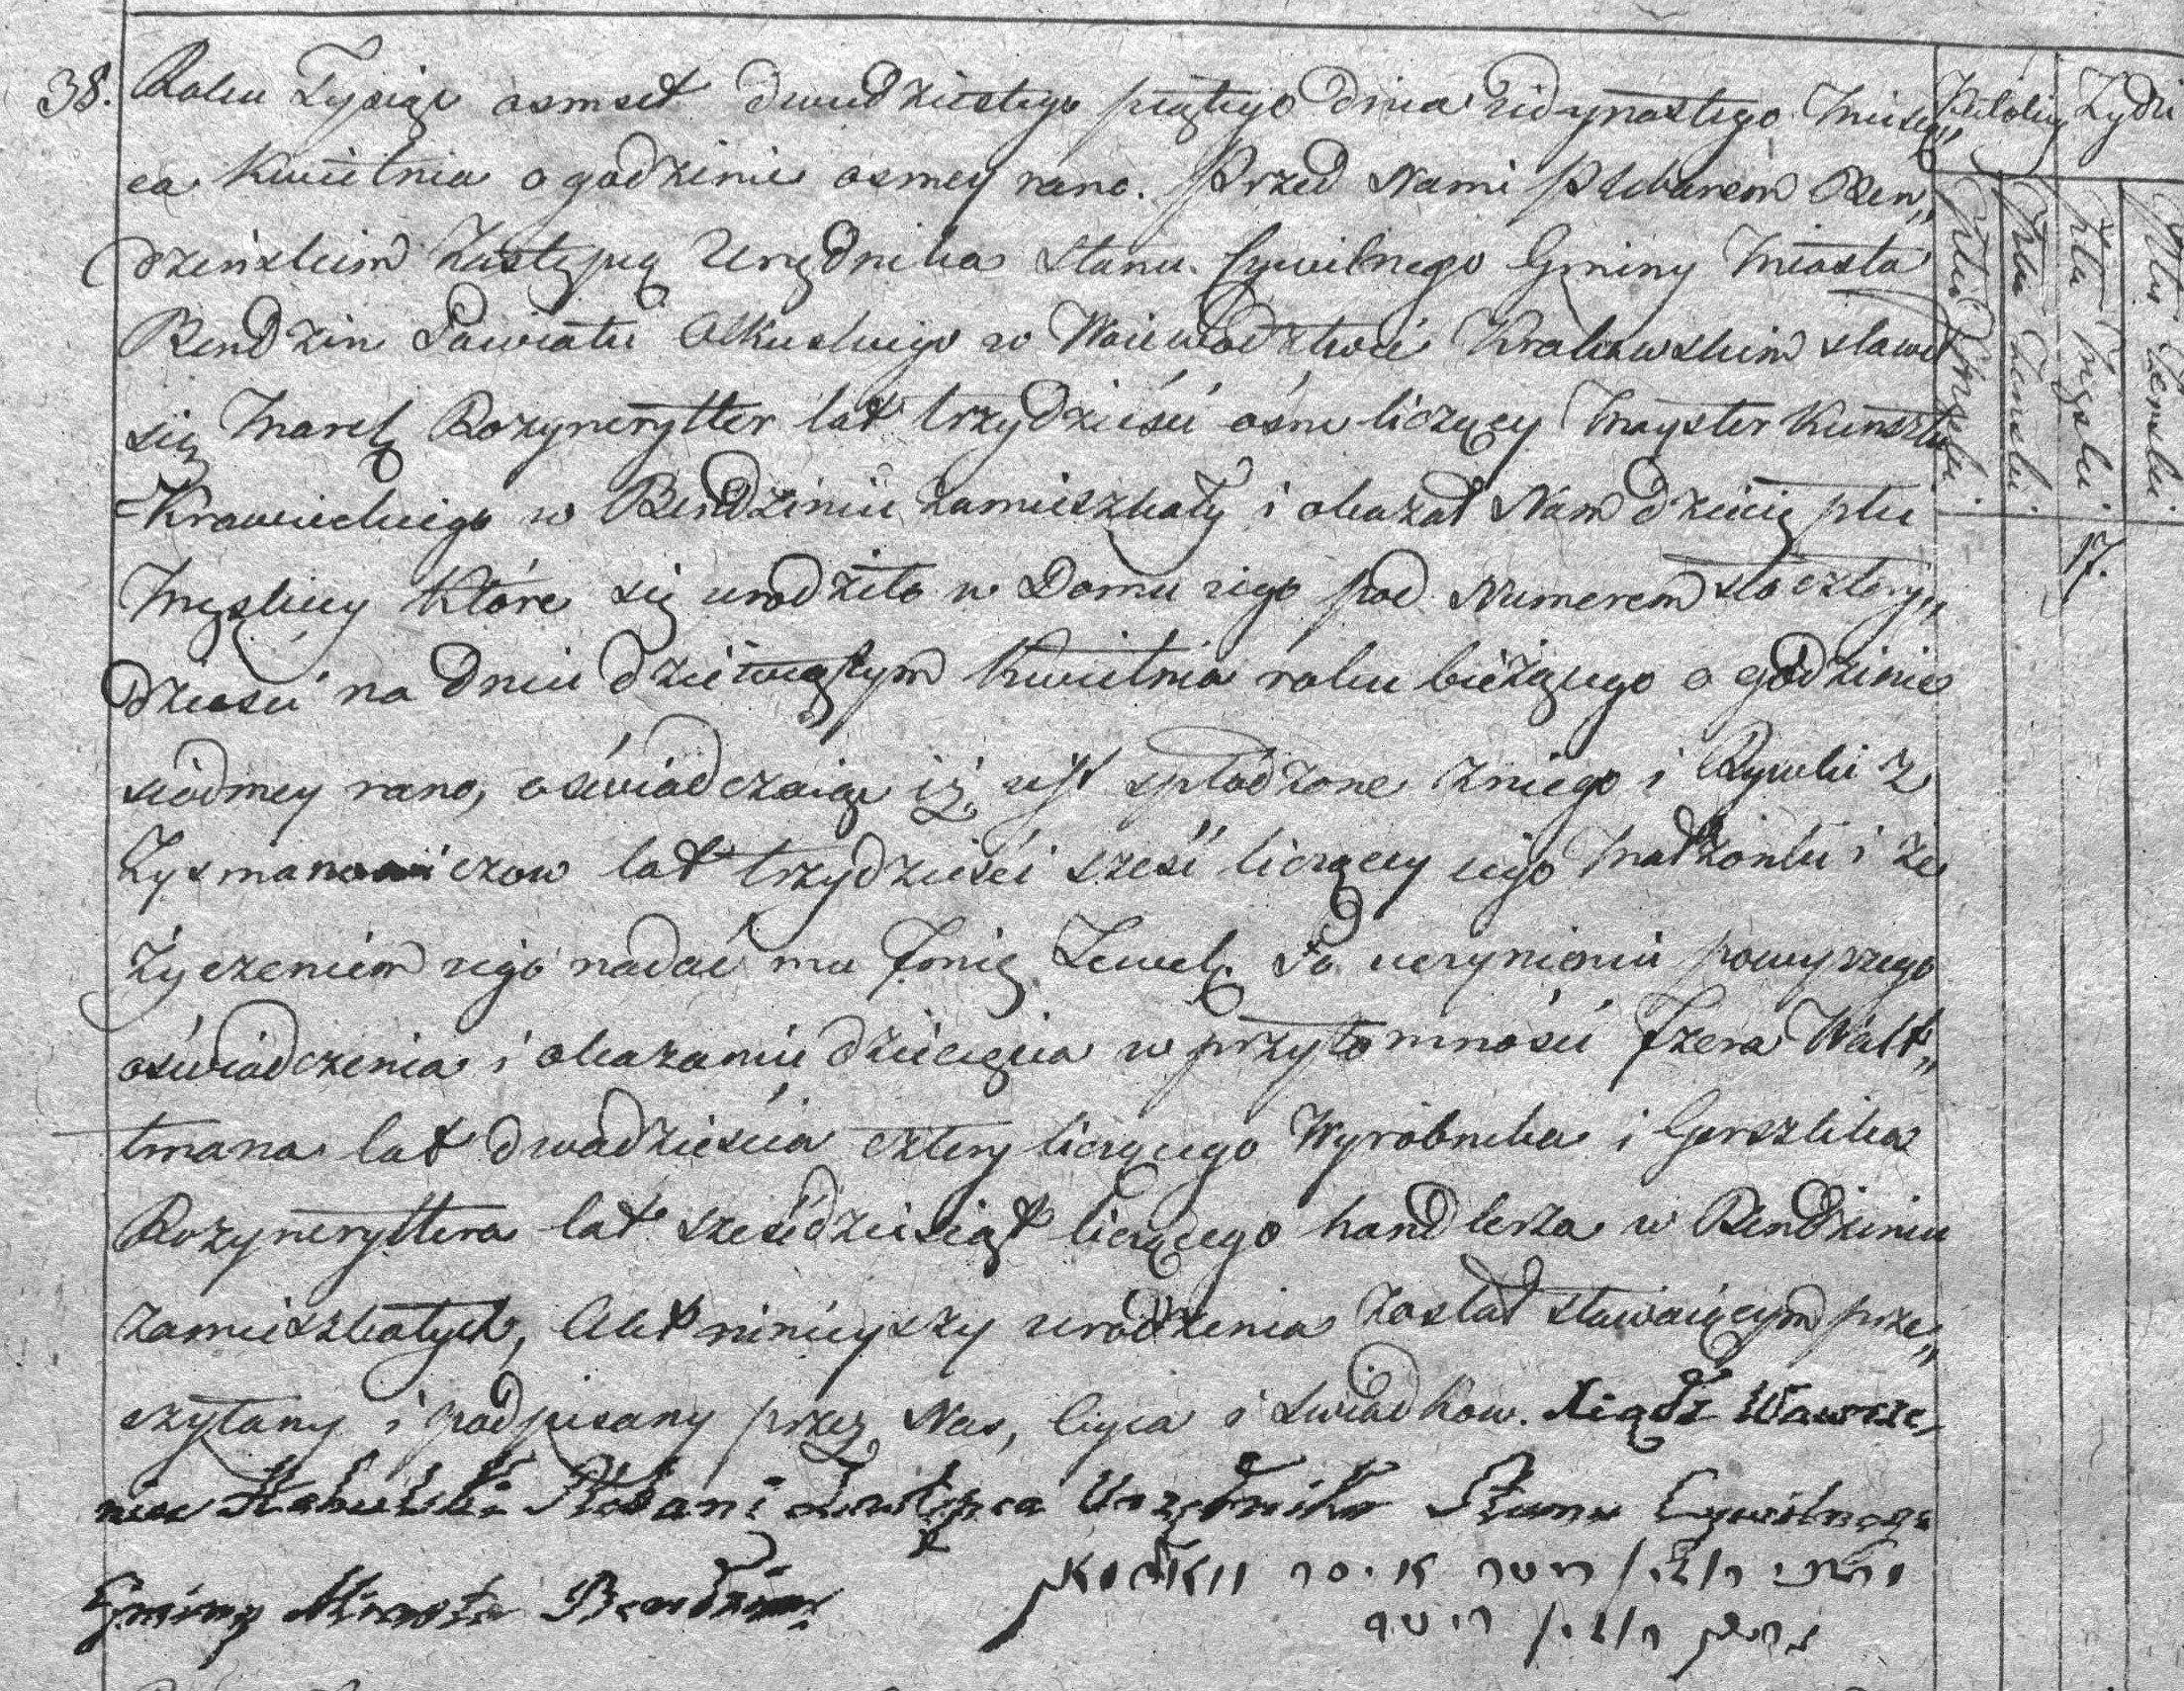 38. Roku Tysiąc osmset dwudziestego piątego dnia iedynastego Miesią„
ca Kwietnia o godzinie osmey rano. Przed Nami Plebanem Ben„
dzeńskim Zastępcą Urzędnika Stanu Cywilnego Gminy Miasta
Bendzin Powiatu Olkuskiego w Woiewodztwie Krakowskim stawił
się Marek Rozynerytter lat trzydzieści ośm liczący Mayster Kunsztu
Krawieckiego w Bendzinie zamieszkały i okazał Nam dziecię płci
Męskiey które się urodziło w Domu iego pod Numerem sto cztery„
dzieści na dniu dziewiątym Kwietnia roku bieżącego o godzinie
siodmey rano, oświadczaiąc iż iest spłodzone z niego i Rywki z
Zysmanowiczow lat trzydzieści sześć liczącey iego Małżonki i że
życzeniem iego nadać mu Imię Lewek. Po uczynieniu powyższego
oświadczenia i okazaniu dziecięcia w przytomności Izera Walt„
tmana lat dwadzieścia cztery liczącego Wyrobnika i Gerszlika
Rozyneryttera lat sześćdziesiąt liczącego handlerza w Bendzinie
zamieszkałych, Akt ninieyszy urodzenia został stawaiącym prze„
czytany i podpisany przez Nas, Oyca i Swiadkow. Xiądz Wawrze„
niec Pleban i Zastępca Urzędnika Stanu Cywilnego
Gminy Miasta Bendzina
Katolicy Żydzi
Płci Męskiey.
Płci Żenskiey.
Płci Męskiey.
Płci Żenskiey.
17.